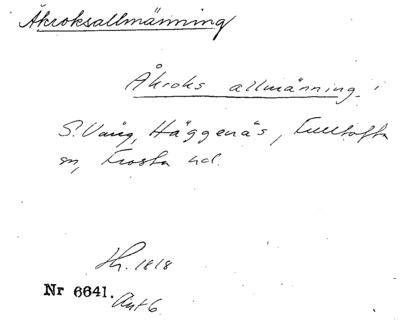 Åkroksallmänning
Åkroks allmänning i
S. Vång, Häggenäs, Fulltofta
sn, Frosta hd.
Hr. 1818
Nr 6641.
Ant 6